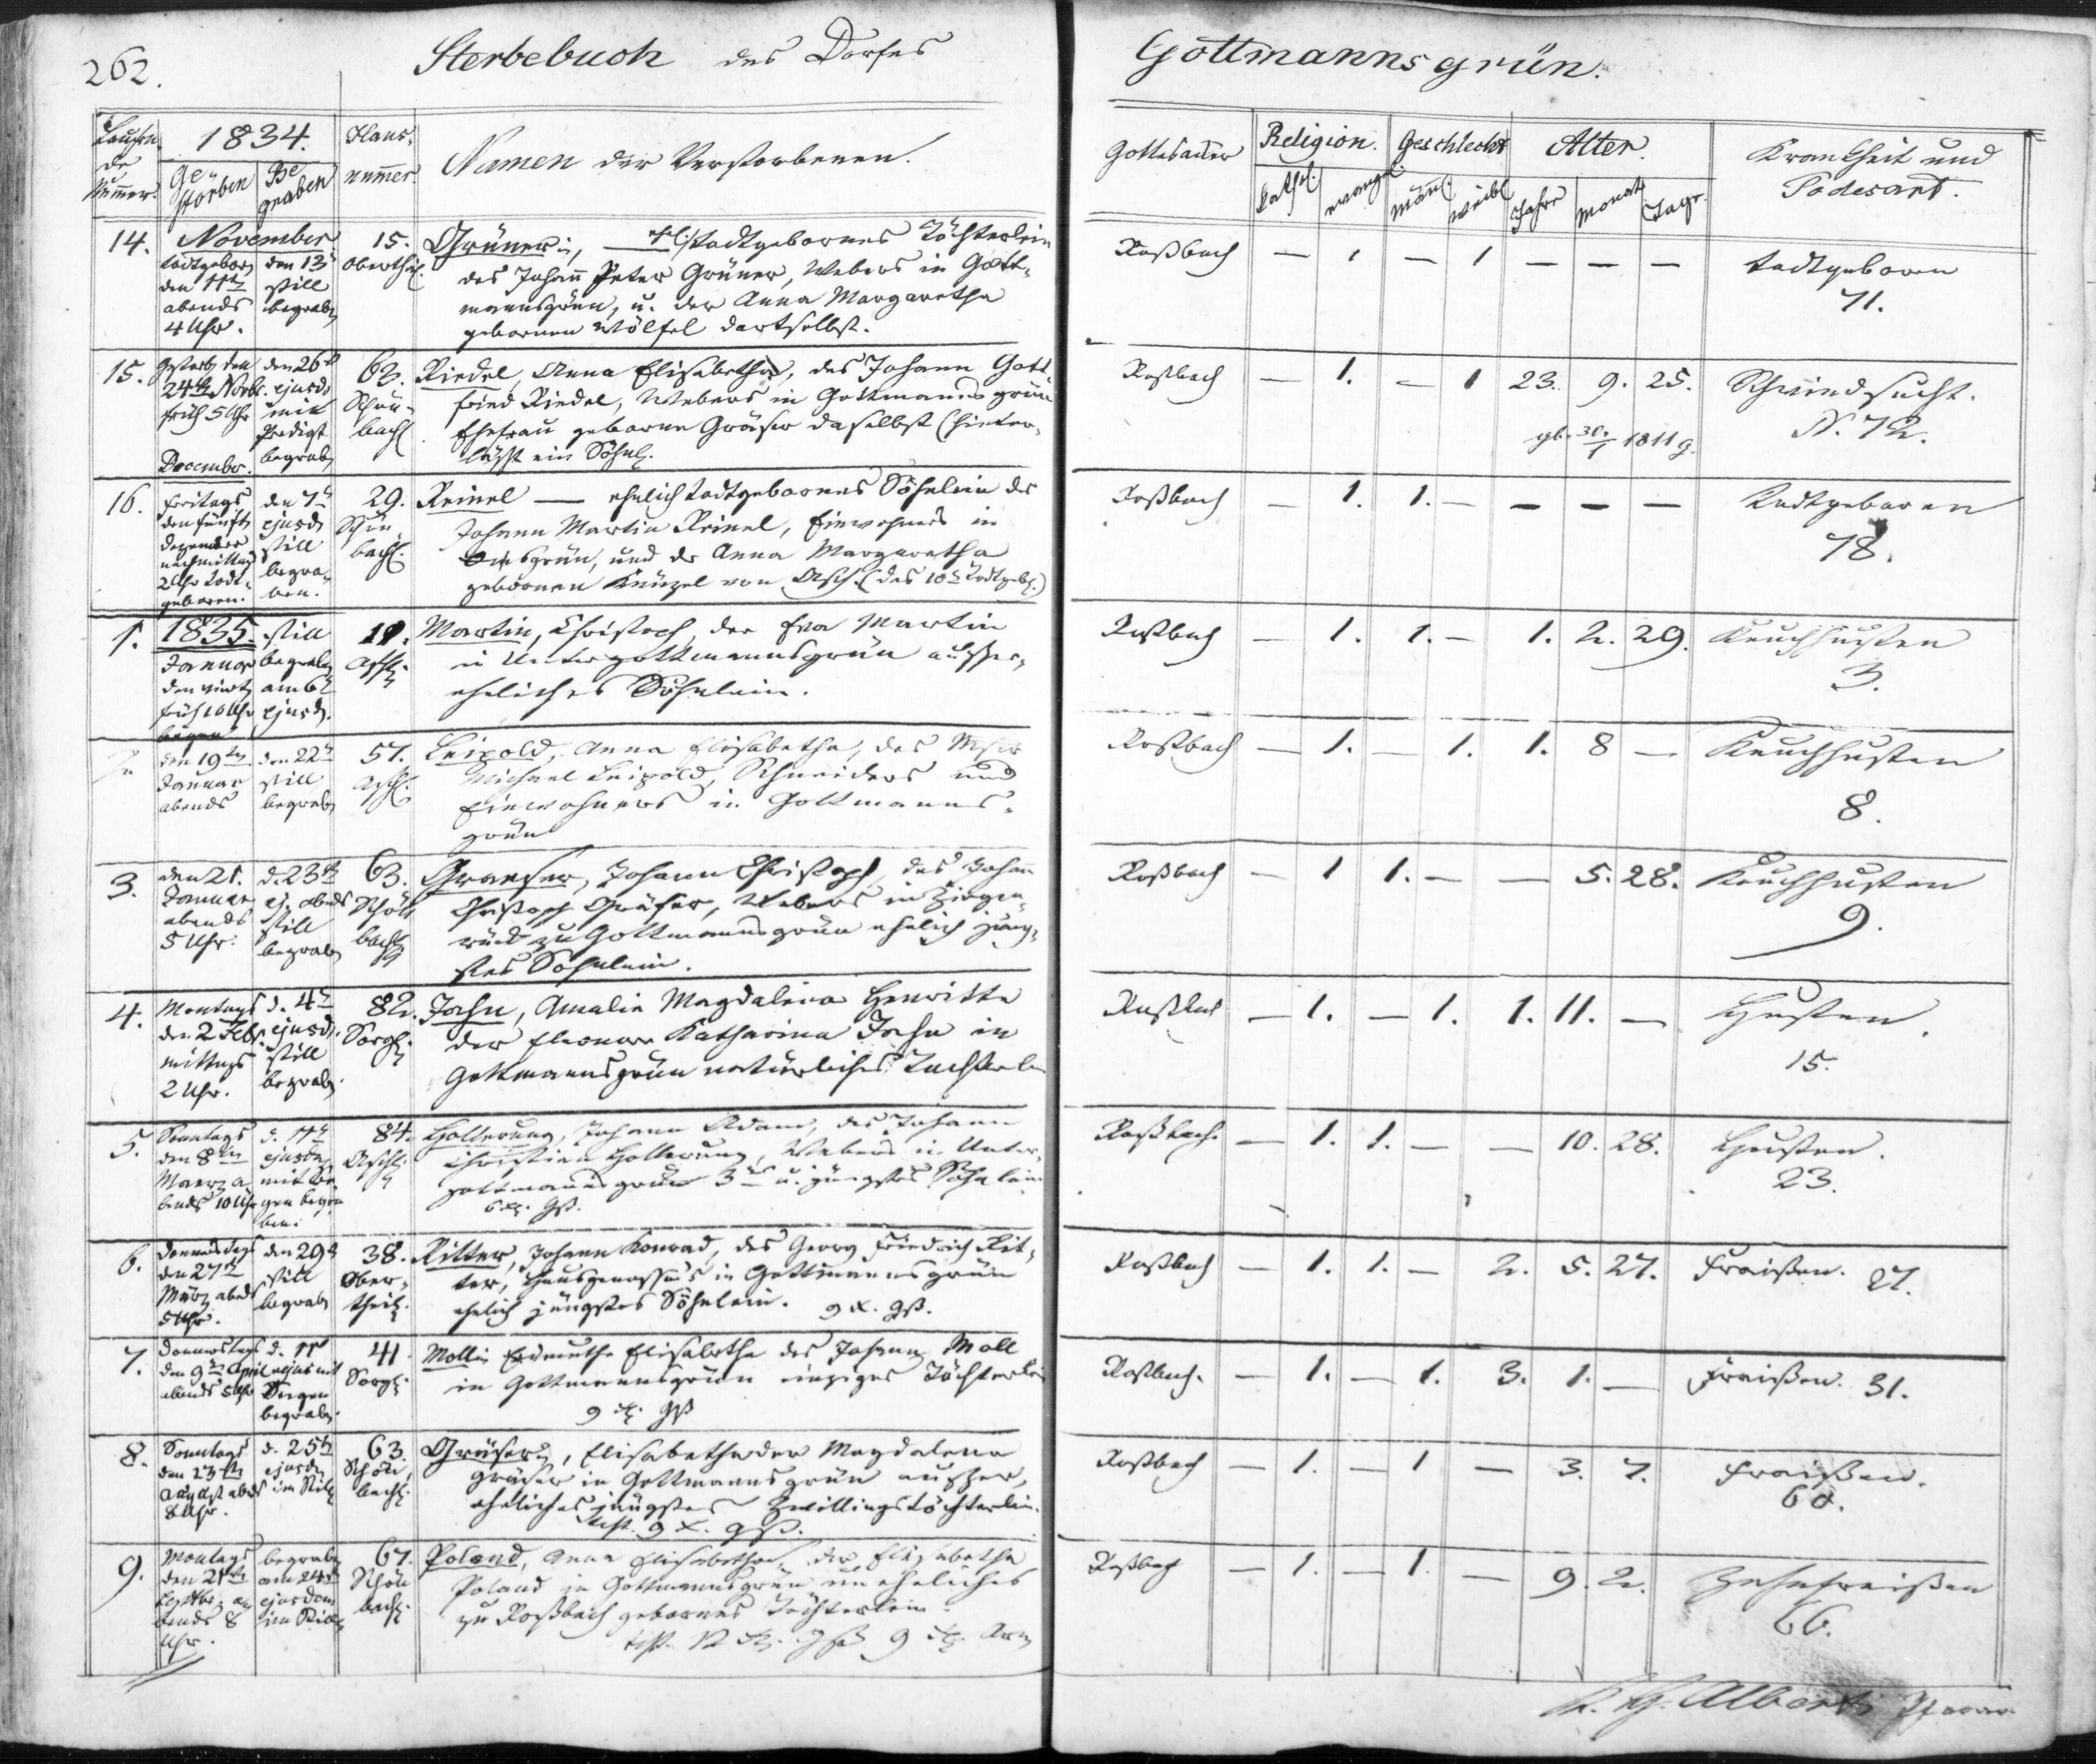 262.
Sterbebuch des Dorfes
Gottmannsgrün.
Laufende Nummer.
1834.
Gestorben
Begraben
Hausnummer.
Namen der Verstorbenen.
Gottesacker
Religion.
Kathol.
evangel
Geschlecht
Männl.
weibl
Alter.
Jahre
Monat
Tage.
Krankheit und
Todesart.
14.
November
todtgeborn
den 11ten
abends
4 Uhr.
den 13n
still
begrabn
15.
Oberthl.
Grünerin, todtgebornes Töchterlein
des Johann Peter Grüner, Webers in Gott-
mannsgrün, u. der Anna Margaretha
gebornen Wölfel dortselbst.
Roßbach — 1 — 1 — — —
todtgeboren
71.
15.
Gestorb den
24ten Novbr.
früh 5 Uhr
den 26n
ejusd.
mit
Predigt
begrabn
63.
Schön-
bach
Riedel, Anna Elisabetha, des Johann Gott
fried Riedel, Webers in Gottmannsgrün
Ehefrau geborne Gräser daselbst (hinter-
läßt ein Söhnl.
Roßbach — 1. — 1 23. 9. 25.
gb. 30/1 1811
Schwindsucht.
N. 72.
December.
16.
Freitags
den fünftn
Dezember
nachmittag
2 Uhr todt-
geboren.
den 7n
ejusd
still
begra-
ben.
29.
Schön
bach.
Reinel — ehelich todtgebornes Söhnlein des
Johann Martin Reinel, Einwohners in
grün, und der Anna Margaretha
gebornen Künzel von Asch. (das 10te todtgeb.)
Roßbach — 1. 1. — — — —
Todtgeboren
78.
1.
1835.
Januar
früh 10 Uhr
still
begrabn
am 6n
ejusd.
Asch
Martin, Christoph, der Eva Martin
in Untergottmannsgrün ausser-
eheliches Söhnlein.
Roßbach — 1. 1. — 1. 2. 29.
Keuchhusten
3.
den 19ten
Januar
abends
den 22n
still
begrabn
57.
Asch.
Leipold, Anna Elisabetha, des Mstr
Michael Leipold, Schneiders und
Einwohners in Gottmanns-
grün
Roßbach — 1. — 1. 1. 8 —
Keuchhusten
8.
3.
den 21.
Januar
abends
5 Uhr.
d. 23n
ej. abends
still
begrabn
63.
Schön
bach
Graeser, Johann Christoph, des Johann
Christoph Gräser, Webers in Ziegen-
rück zu Gottmannsgrün ehelich jüng-
stes Söhnlein.
Roßbach — 1 1. — — 5. 28.
Keuchhusten
9.
4.
Montags
den 2 Feb.
mittags
2 Uhr.
d. 4n
ejusd.
still
begrabn.
82.
Sorg.
Jahn, Amalia Magdalena Henriette
der Eleonore Katharina Jahn in
Gottmannsgrün natürliches Töchterlein
Roßbach — 1. — 1. 1. 11. —
Husten.
15.
5.
Sonntags
den 8ten
Maerz a-
bends 10 Uhr
d. 11n
ejusdn
mit Se-
gen begra-
ben.
84.
Asch.
Hollerung, Johann Adam, des Johann
Christian Hollerung, Webers in Unter-
gottmannsgrün 3tes u. jüngstes Söhnlein
Roßbach. — 1. 1. — — 10. 28.
Husten.
23.
6.
Donnerstags
den 27n
März abends
5 Uhr.
den 29n
still
begrabn
38.
Ober-
theil.
Ritter, Johann Konrad, des Georg Friedrich Rit-
ter, Hausgenossens in Gottmannsgrün
ehelich jüngstes Söhnlein. 9 x. gß.
Roßbach — 1. 1. — 2. 5. 27.
Fraißen. 27.
7.
Donnerstags
den 9ten April
abends 5 Uhr
d. 11n
ejus mit
Segen
begrabn.
41.
Sorg.
Mollin Erdmuthe Elisabetha des Johann Moll
in Gottmannsgrün einziges Töchterlein
Roßbach. — 1. — 1. 3. 1. —
Fraißen. 31.
8.
Sonntags
den 23ten
August abds
8 Uhr.
d. 25n
ejusdn
im Still
63.
Schön
bach.
Gräserin, Elisabetha der Magdalena
Gräser in Gottmannsgrün ausser-
eheliches jüngstes Zwillingstöchterlein.
Roßbach — 1. — 1 — 3. 7.
Fraißen.
9.
Montags
den 21ten
Septbr. a-
bends 8
Uhr.
begrabn
am 24n
ejusdem
im Still
67.
Schön
bach.
Poland, Anna Elisabetha, der Elisabetha
Poland in Gottmannsgrün uneheliches
zu Roßbach gebornes Töchterlein.
Roßbach — 1. — 1. — 9. 2.
Zahnfraißen
66.
Alberti Pfarrer.